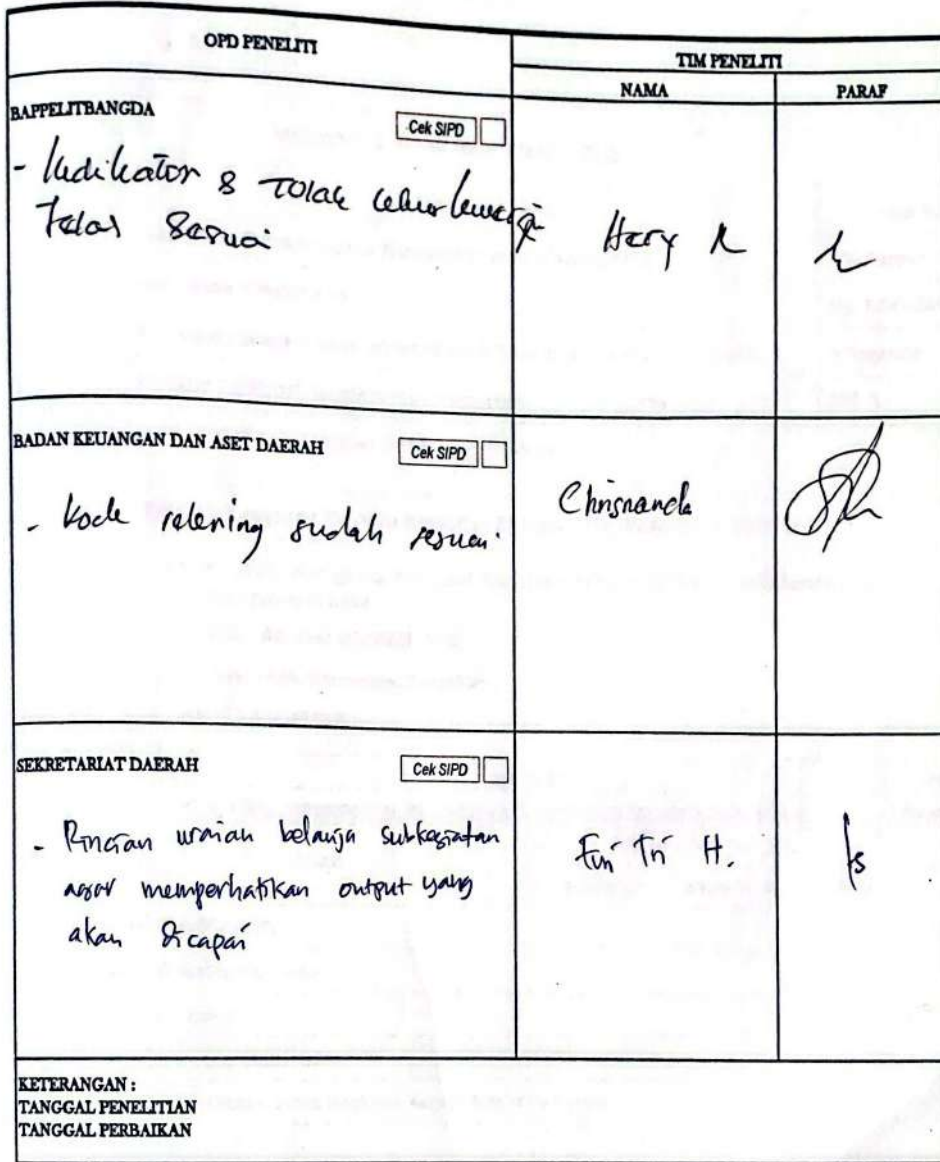 OPD PENELITI
TIM PENELITI
NAMA
PARAF
BAPPELITBANGDA
Cek SIPD
- Indikator & Tolak ukur kinerja
Telah Sesuai
Hery
BADAN KEUANGAN DAN ASET DAERAH
Cek SIPD
- kode rekening sudah sesuai
Chrisnanda
SEKRETARIAT DAERAH
Cek SIPD
- Rincian uraian belanja subkegiatan
agar memperhatikan output yang
akan dicapai
Tri H.
KETERANGAN :
TANGGAL PENELITIAN
TANGGAL PERBAIKAN